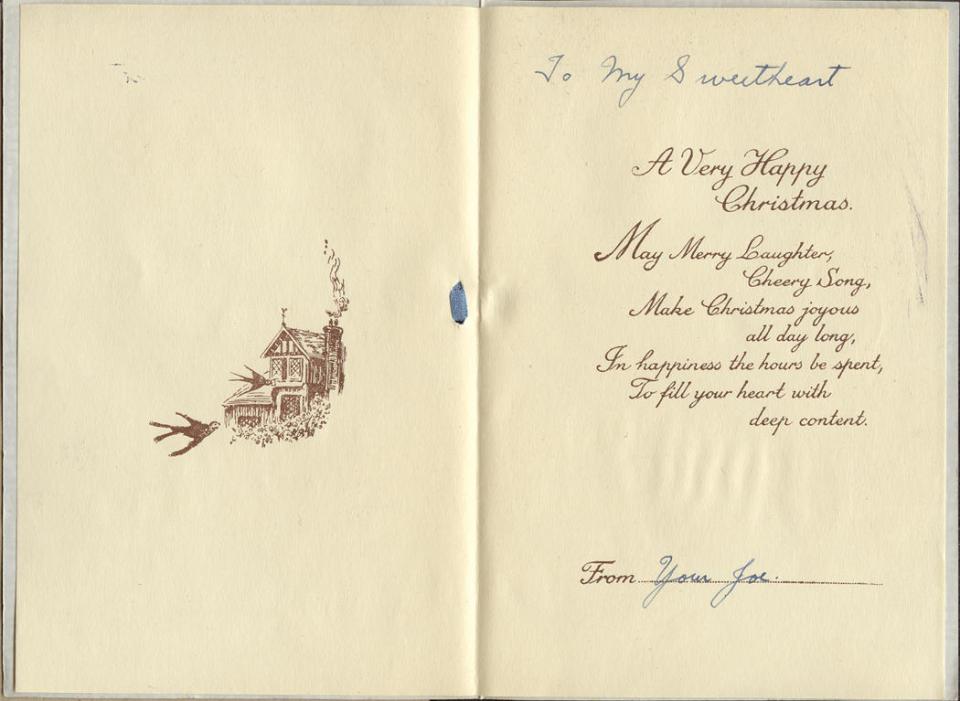 To My Sweetheart
A Very Happy
Christmas.
May Merry Laughter,
Cheery Song,
Make Christmas joyous
all day long,
In happiness the hours be spent,
To fill your heart with
deep content.
From Your Joe.